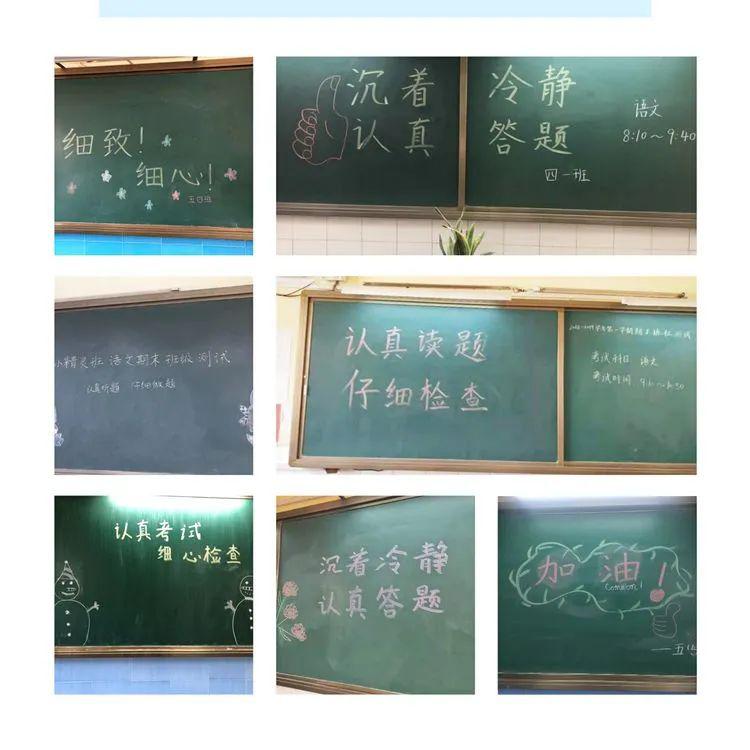 细致!
细心!
五四班
沉着 冷静
认真 答题
语文
8:10～9:40
四一班
小精灵班 语文期末 班级 测试
认真听题 仔细做题
认真读题
仔细检查
考试科目 语文
考试时间
认真考试
细心检查
沉着冷静
认真答题
加油!
Come on!